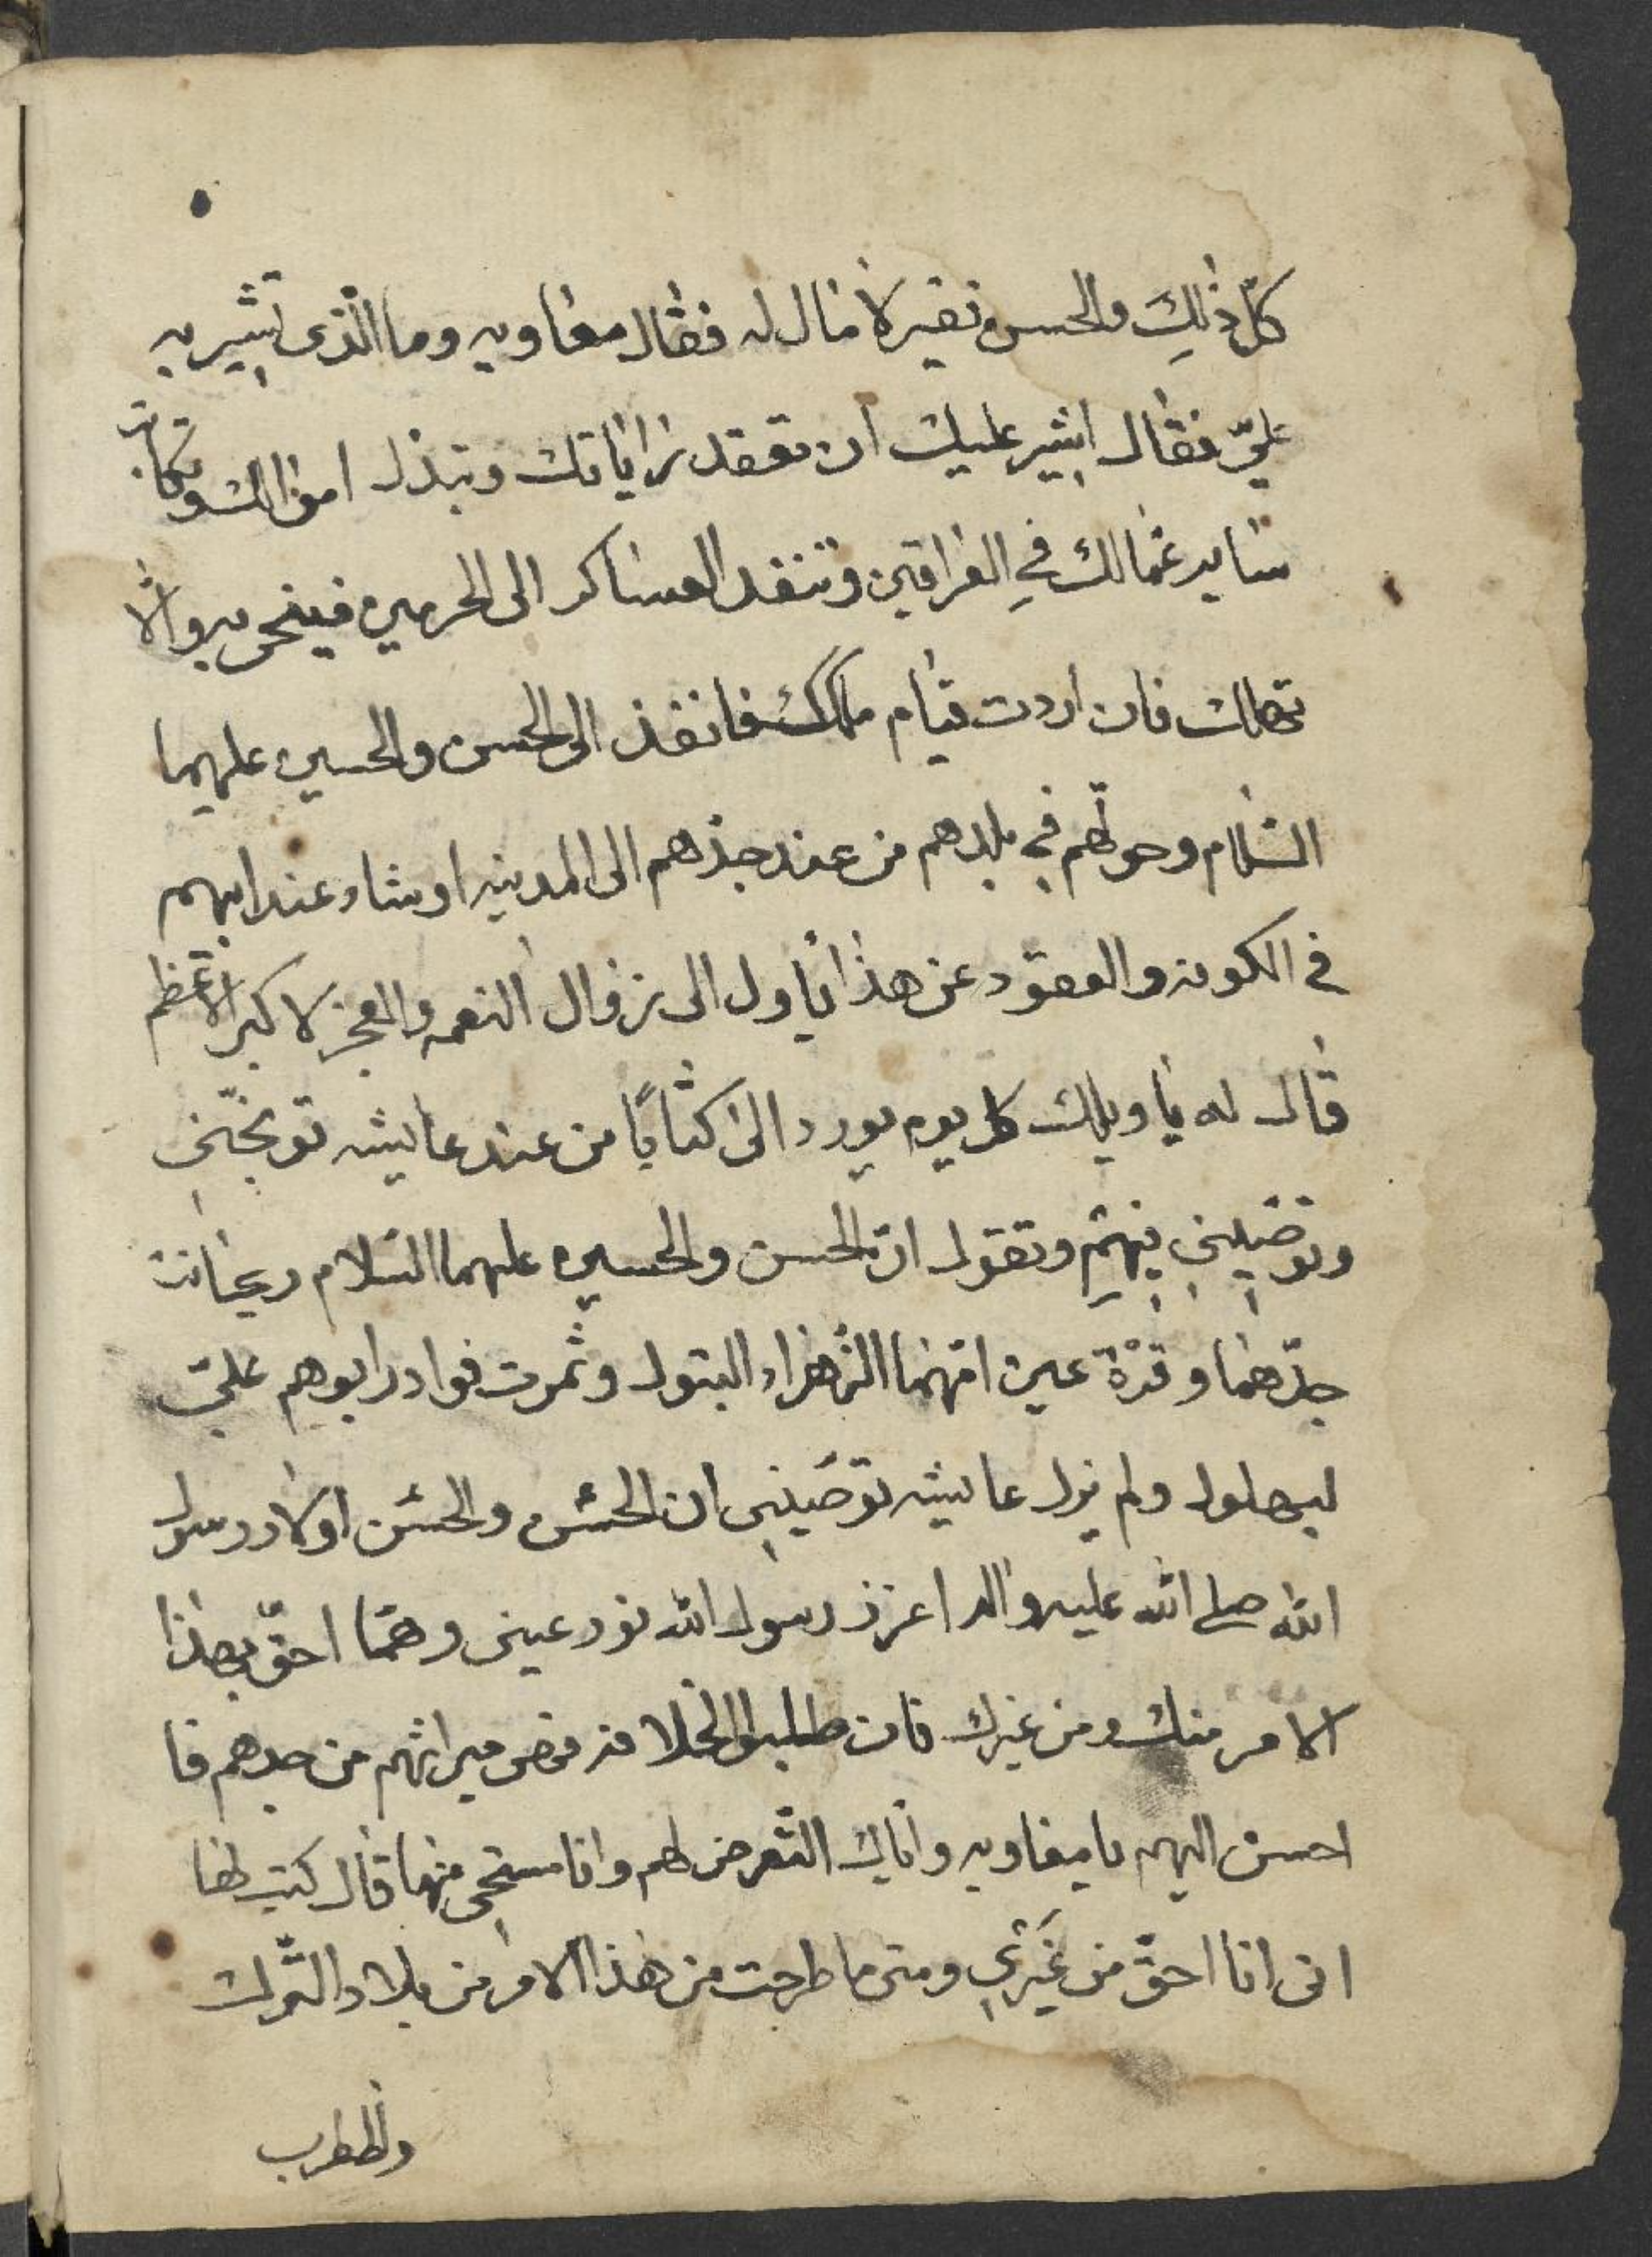 كلّ ذلِكَ والحسن فقير لا مال له فقال معاويه وما الّذى تشير به
عليّ فقال اشير عليك ان تعقد راياتك وتبذل اموالك وتكاتب
ساير عمالك فِي العراقين وتنفد العساكر الى الحرمين فينحى به والا
تهلك فان اردت قيام ملكك فانفذ الى الحسن والحسين عليهما
السلام وحولهم في بلدهم من عند جدهم الى المدينه او شاء عند ابيهم
فى الكوفه والعقود عن هذا ياول الى زوال النعمه والعجز لاكبر الاعظم
قال له يا ويلك كل يوم يورد الىّ كتابًا من عند عايشه توبخّنى
وتوصيني فيهِم وتقول انّ الحسن والحسين عليهما السلام ريحانت
جدّهما وقرْة عين امّهما الزهراء البتول وثمرت فواد ابوهم عليّ
لبهلول ولم يزل عايشه توصيني ان الحسن والحسن اولاد رسول
الله صلى الله عليه واله اعزز رسول الله نور عينى وهمّا احقّ بهذا
الامر منك ومن غيرك فان طلبوا الخلافه فهى ميراثهم من جدهم فا
احسن اليهم يا معاويه واياك التّعرض لهم وانا مستحى منهما قال كتب لها
انى انا احقّ من غَيرَيِ ومتى ما طرحت من هذا الامر من بلاد التّرك